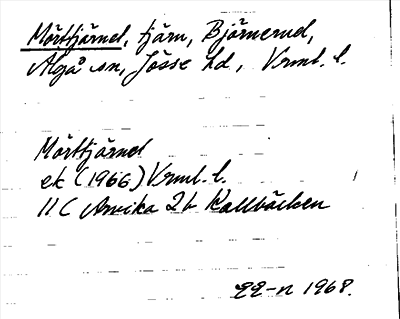 Mörttjärnet, tjärn, Björnerud,
Älgå sn, Jösse hd, Vrml. l.
Mörttjärnet
ek (1966) Vrml. l.
11C Arvika 2b Kallbäcken
1968.